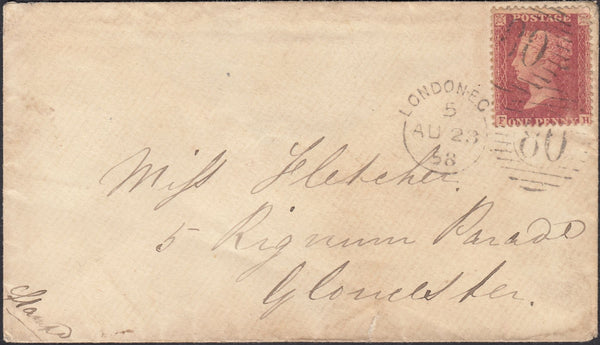 POSTAGE
ONE PENNY
H
LONDON·EC
5
AU 23
58
80
Miss Fletcher.
5 Rignum Parade
Gloucester.